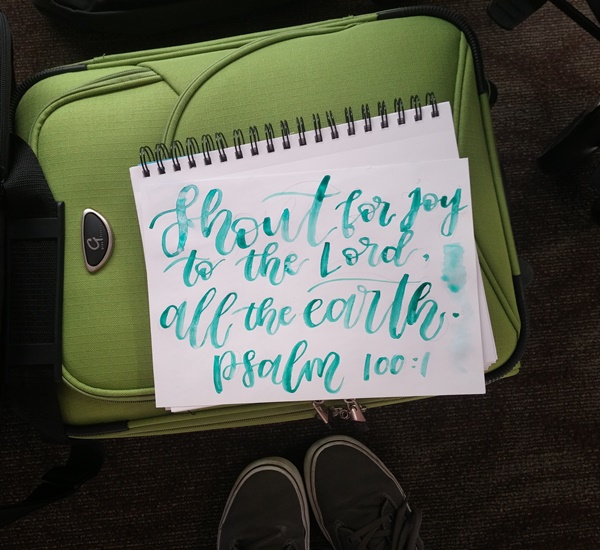 Shout for Joy
to the Lord,
all the earth.
psalm 100:1